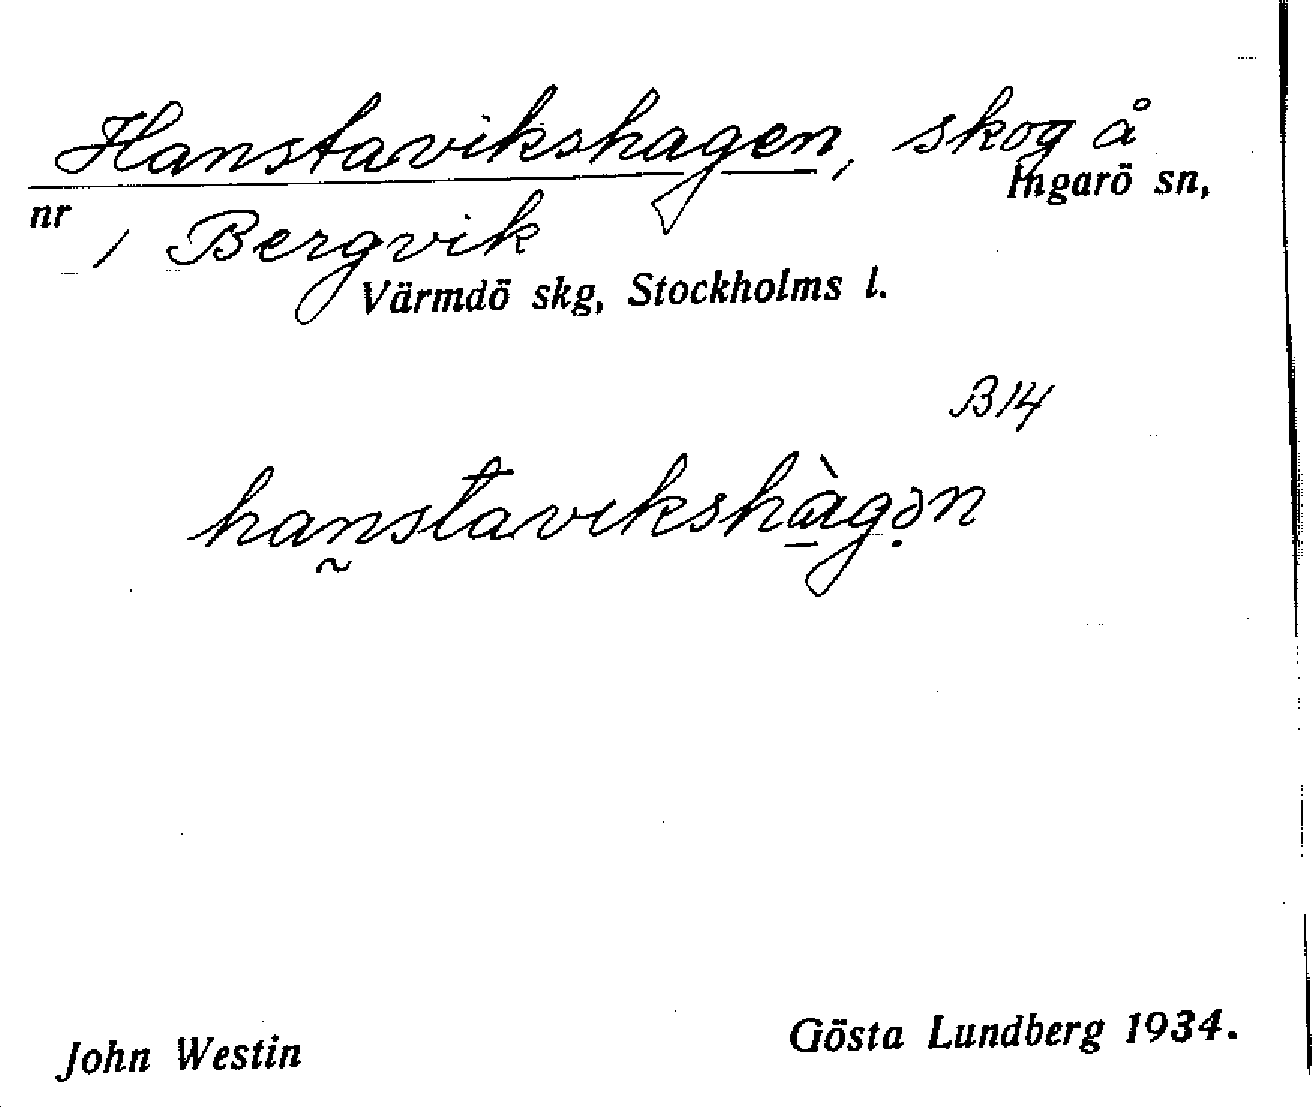 Hanstavikshagen, skog å
Ingarö sn,
nr 1 Bergvik
Värmdö skg, Stockholms l.
B14
ha̰nstavikshàgən
John Westin
Gösta Lundberg 1934.